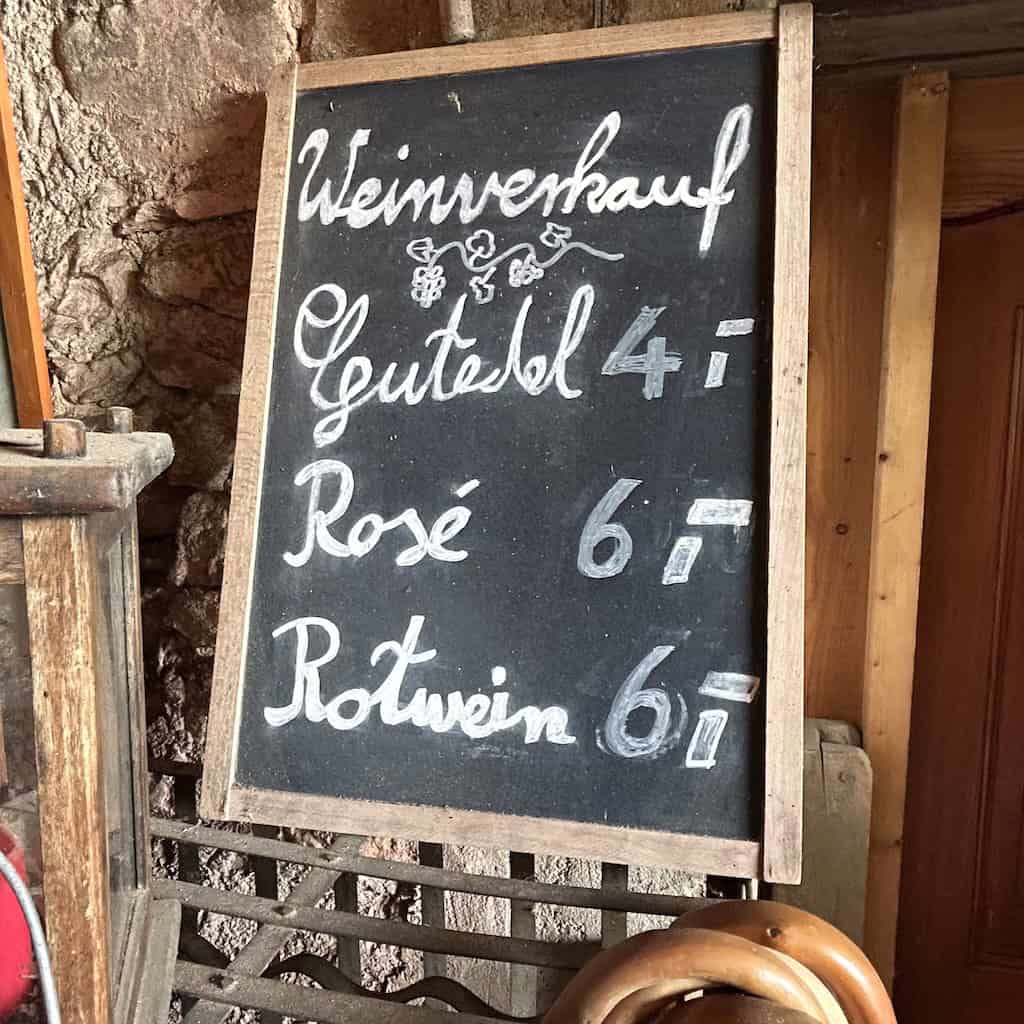 Weinverkauf
Gutedel 4,-
Rosé 6,-
Rotwein 6,-